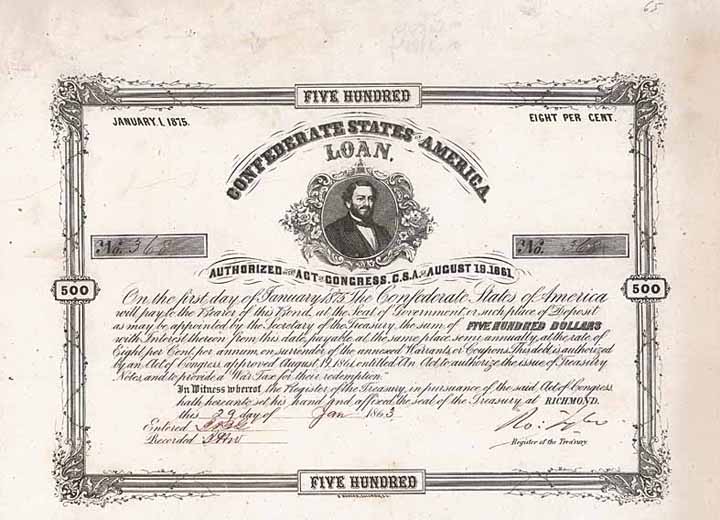 65
FIVE HUNDRED
JANUARY.1.1875.
EIGHT PER CENT.
CONFEDERATE STATES OF AMERICA.
LOAN.
No. 368
No. 368
AUTHORIZED BY THE ACT OF CONGRESS, C.S.A. OF AUGUST 19.1861.
500
500
On the first day of January 1875 The Confederate States of America
will pay to the Bearer of this Bond, at the Seat of Government, or such place of Deposit
as may be appointed by the Secretary of the Treasury, the sum of FIVE HUNDRED DOLLARS
with Interest thereon from this date, payable at the same place semi annually, at the rate of
Eight per Cent, per annum, on surrender of the annexed Warrants or Coupons. This debt is authorized
by an Act of Congress, approved August 19, 1861, entitled "An Act to authorize the issue of Treasury
Notes and to provide a War Tax for their redemption."
In Witness whereof, the Register of the Treasury, in pursuance of the said Act of Congress,
hath hereunto set his hand and affixed the seal of the Treasury, at RICHMOND.
this 29 day of Jan 1863
Entered
Recorded
Ro: Tyler
Register of the Treasury.
FIVE HUNDRED